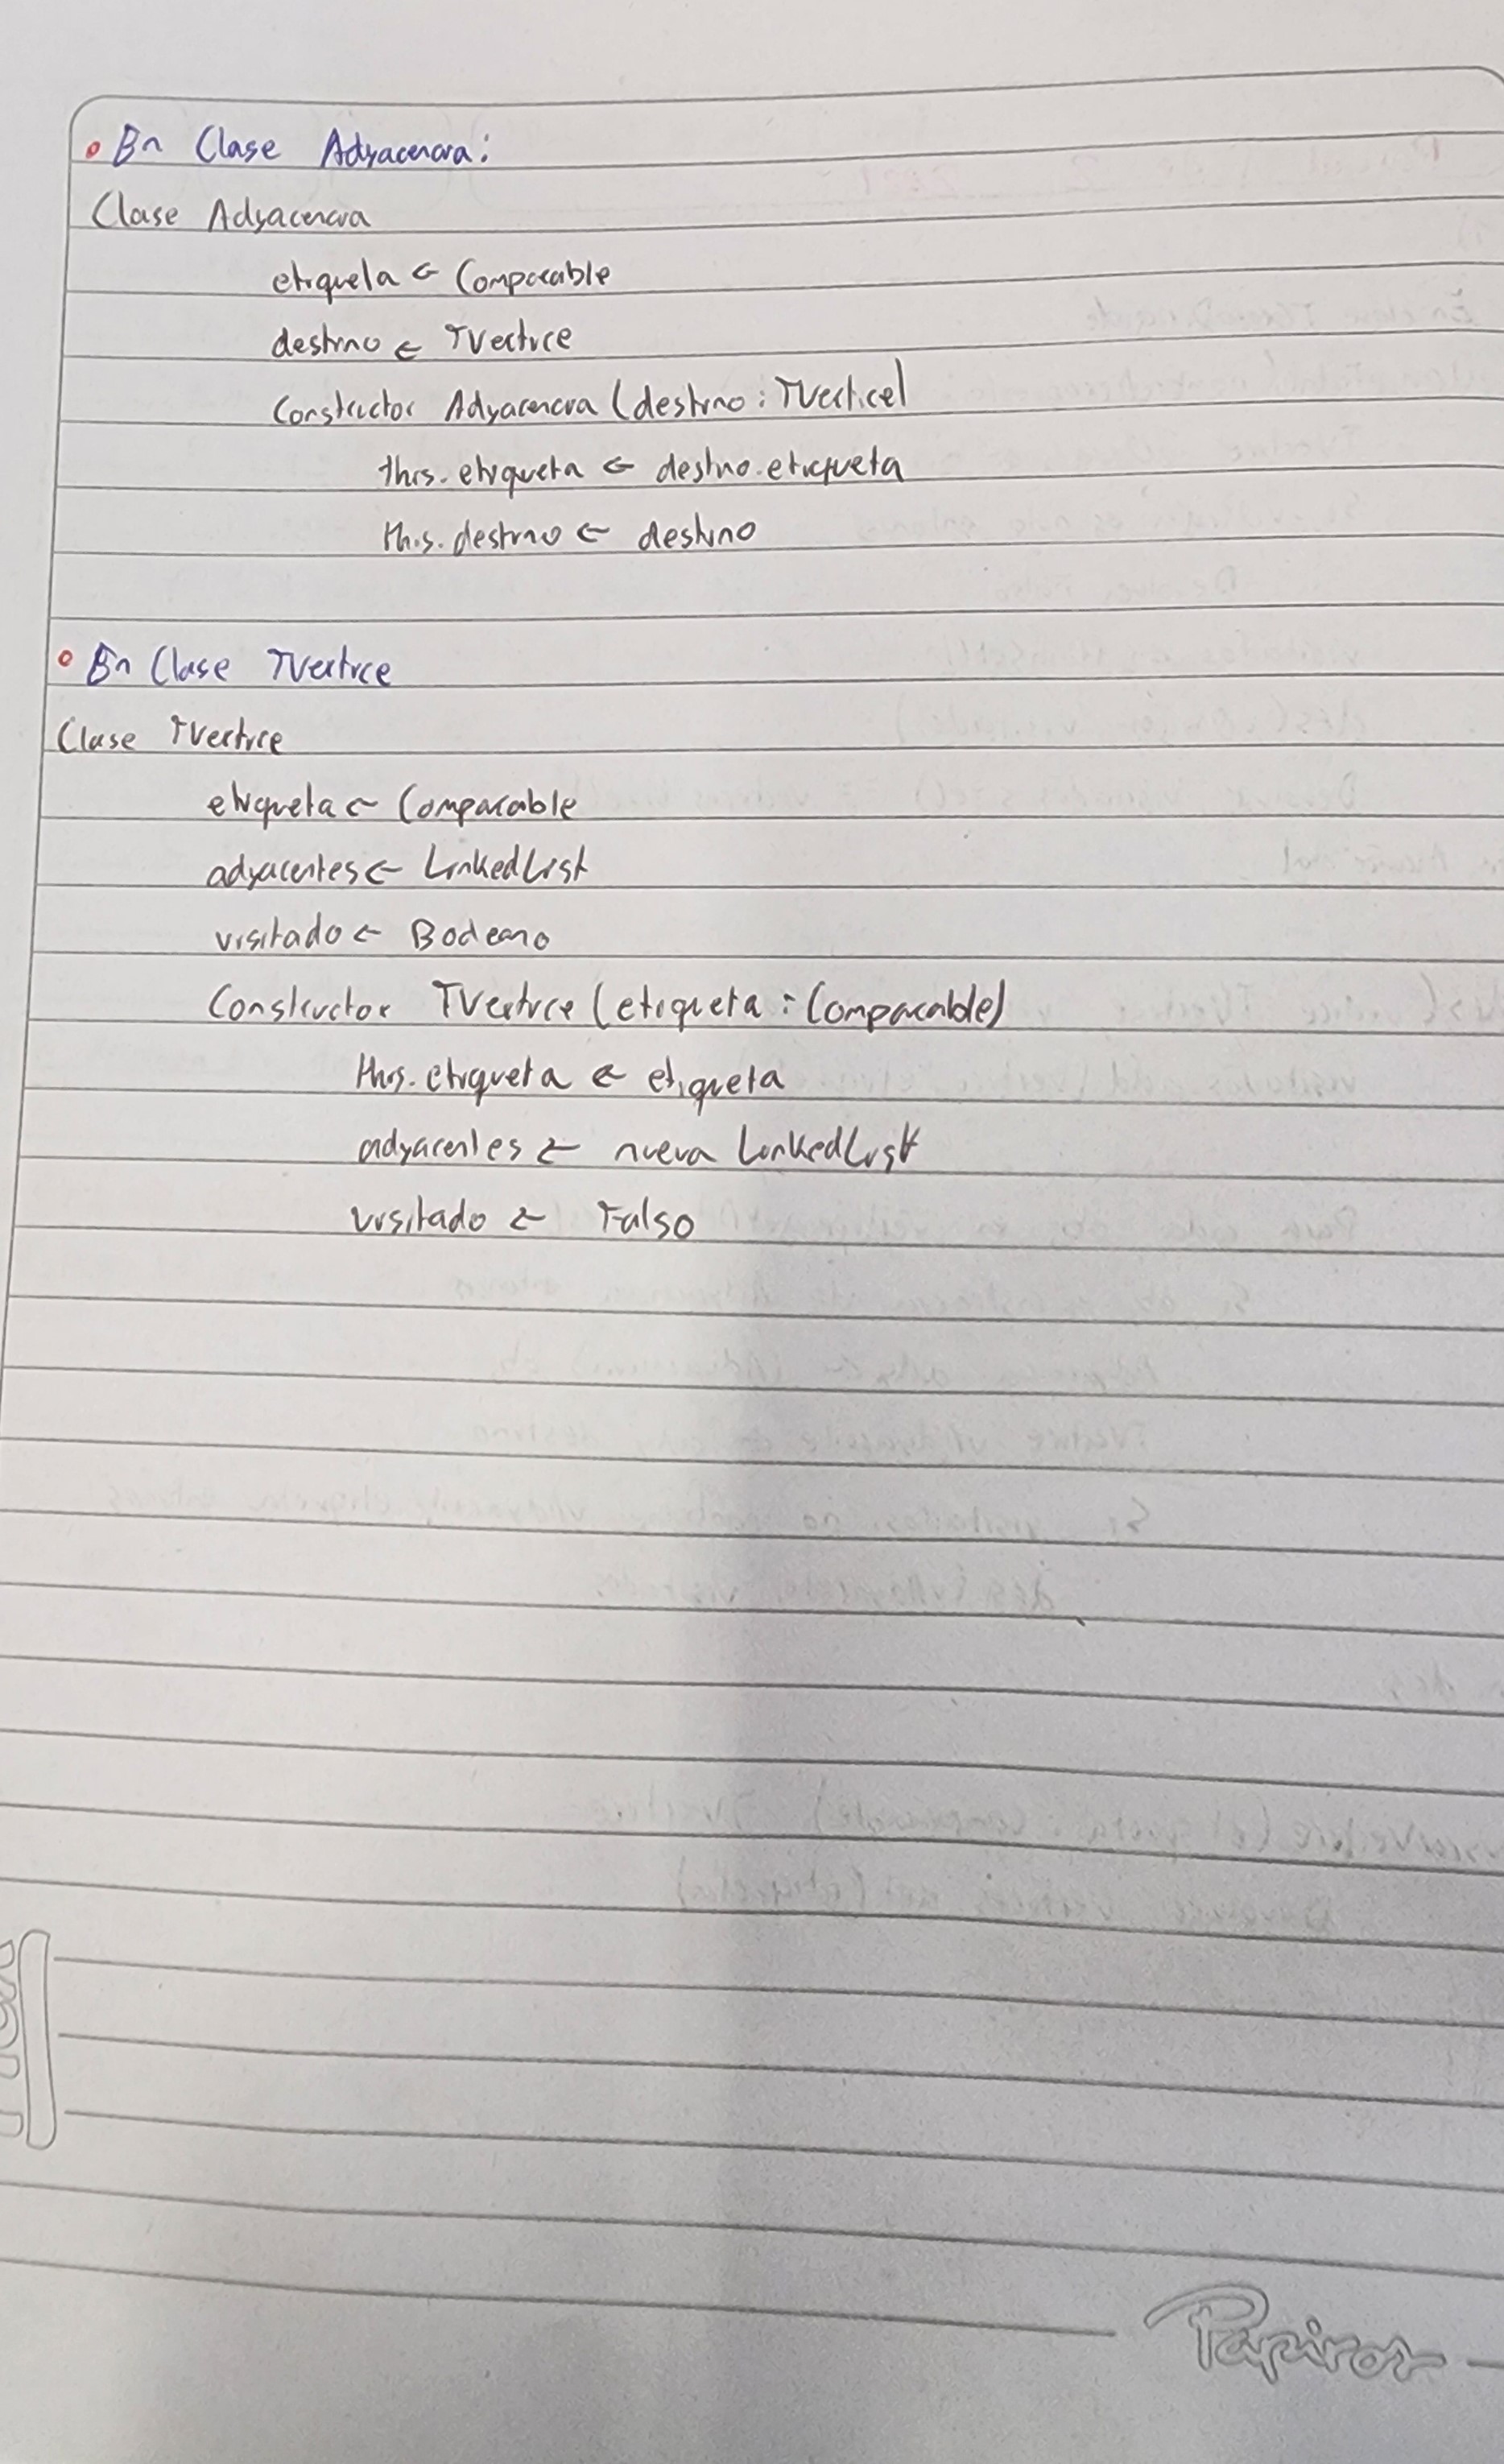 • En Clase Adyacencia:
Clase Adyacencia
etiqueta ← Comparable
destino ← TVertice
Constructor Adyacencia (destino : TVertice)
this.etiqueta ← destino.etiqueta
this.destino ← destino
• En Clase TVertice
Clase TVertice
etiqueta ← Comparable
adyacentes ← LinkedList
visitado ← Booleano
Constructor TVertice (etiqueta : Comparable)
this.etiqueta ← etiqueta
adyacentes ← nueva LinkedList
visitado ← Falso
Papiros